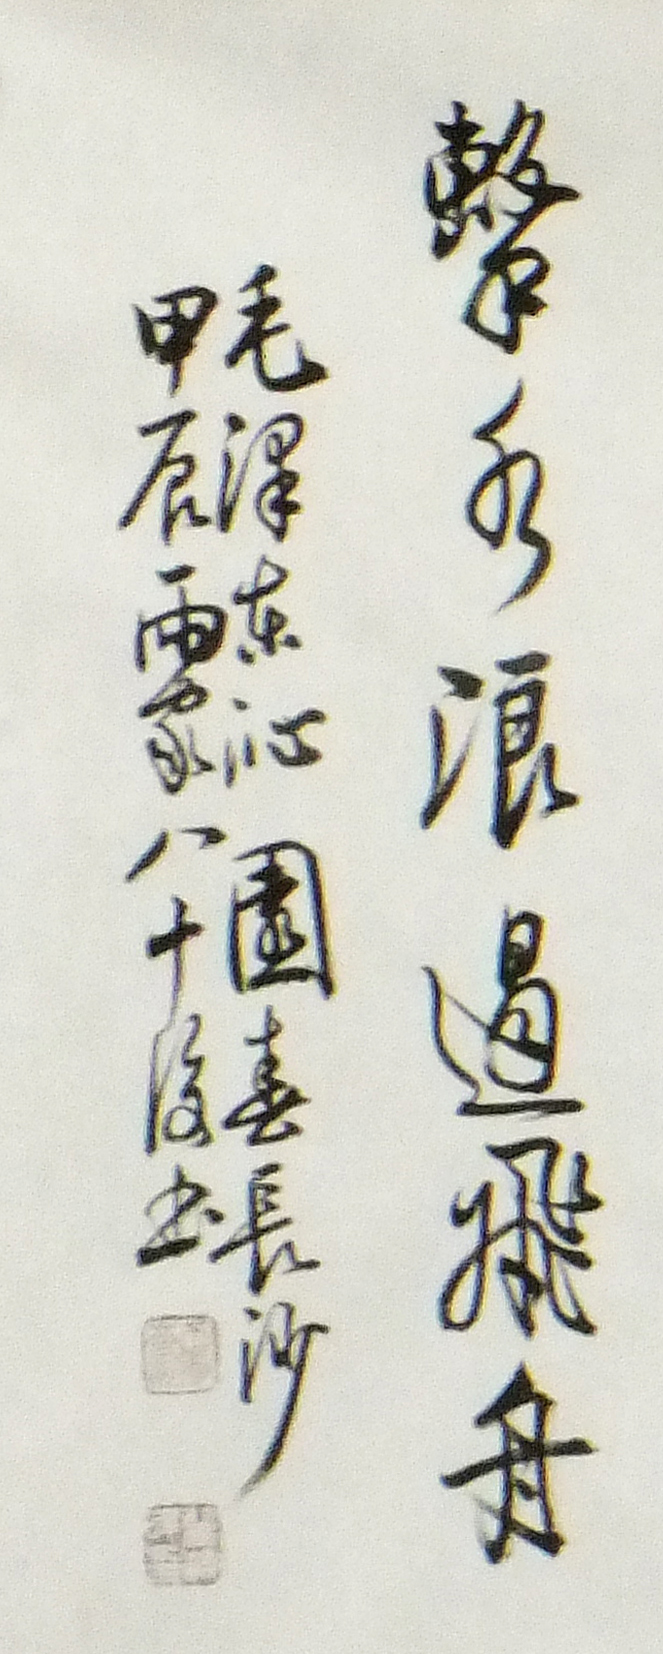 擊水浪遏飛舟
毛澤東沁園春長沙
甲辰雨家八十後書